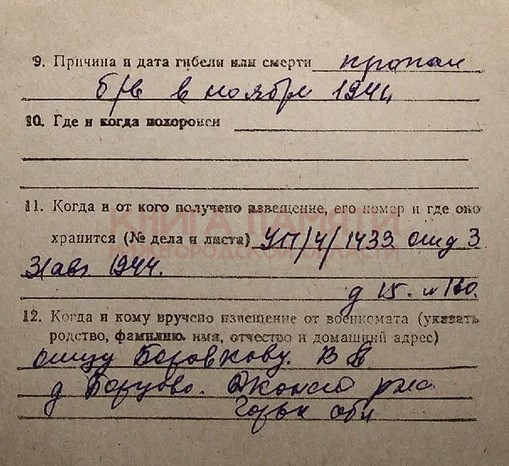 9. Причина и дата гибели или смерти пропал
б/в в ноябре 1944
10. Где и когда похоронен
11. Когда и от кого получено извещение, его номер и где оно
КНИГА ПАМЯТИ
хранится (№ дела и листа) УП/4/1433
1944.
д 15. л 180.
12. Когда и кому вручено извещение от военкомата (указать
родство, фамилию, имя, отчество и домашний адрес)
отцу Боровкову. В
д
обл